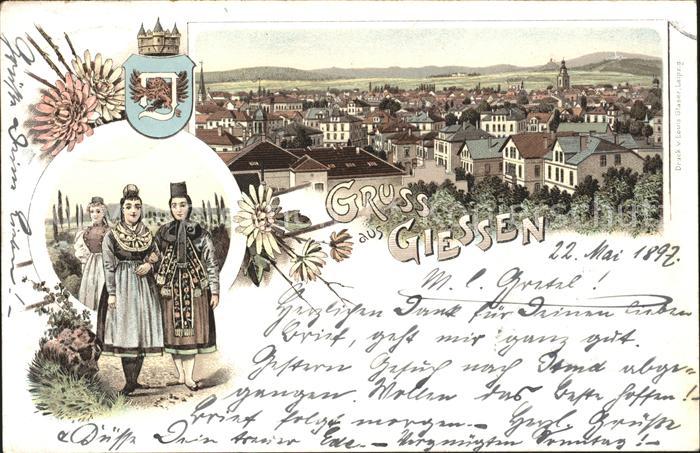 Gruss
aus
Giessen
Druck v. Louis Glaser, Leipzig.
22. Mai 1897.
M. l. Gretel!
Herzlichen Dank für Deinen lieben
Brief, geht mir ganz gut.
Gestern Gesuch nach abge-
gangen. Wollen das beste hoffen!
Brief folgt morgen.- Herzl. Grüße
& Küsse Dein treuer - Vergnügten Sonntag!-